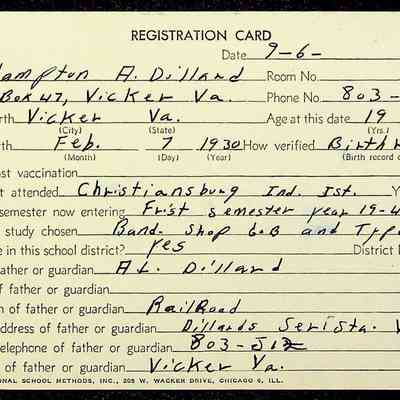 REGISTRATION CARD
Date 9-6-
ampton A. Dillard Room No.
Box 47, Vicker Va. Phone No. 803-
rth Vicker Va. Age at this date 19
(City) (State) (Yrs.)
th Feb. 7 1930 How verified Birth
(Month) (Day) (Year) (Birth record o
st vaccination
t attended Christiansburg Ind. Ist. Y
semester now entering Frist semester year 19-4
study chosen Band. Shop and Typ
e in this school district? yes District
ather or guardian A.L. Dillard
of father or guardian
n of father or guardian RailRoad
address of father or guardian Dillards Serista. V
elephone of father or guardian 803-J12
of father or guardian Vicker Va.
ONAL SCHOOL METHODS, INC., 205 W. WACKER DRIVE, CHICAGO 6, ILL.